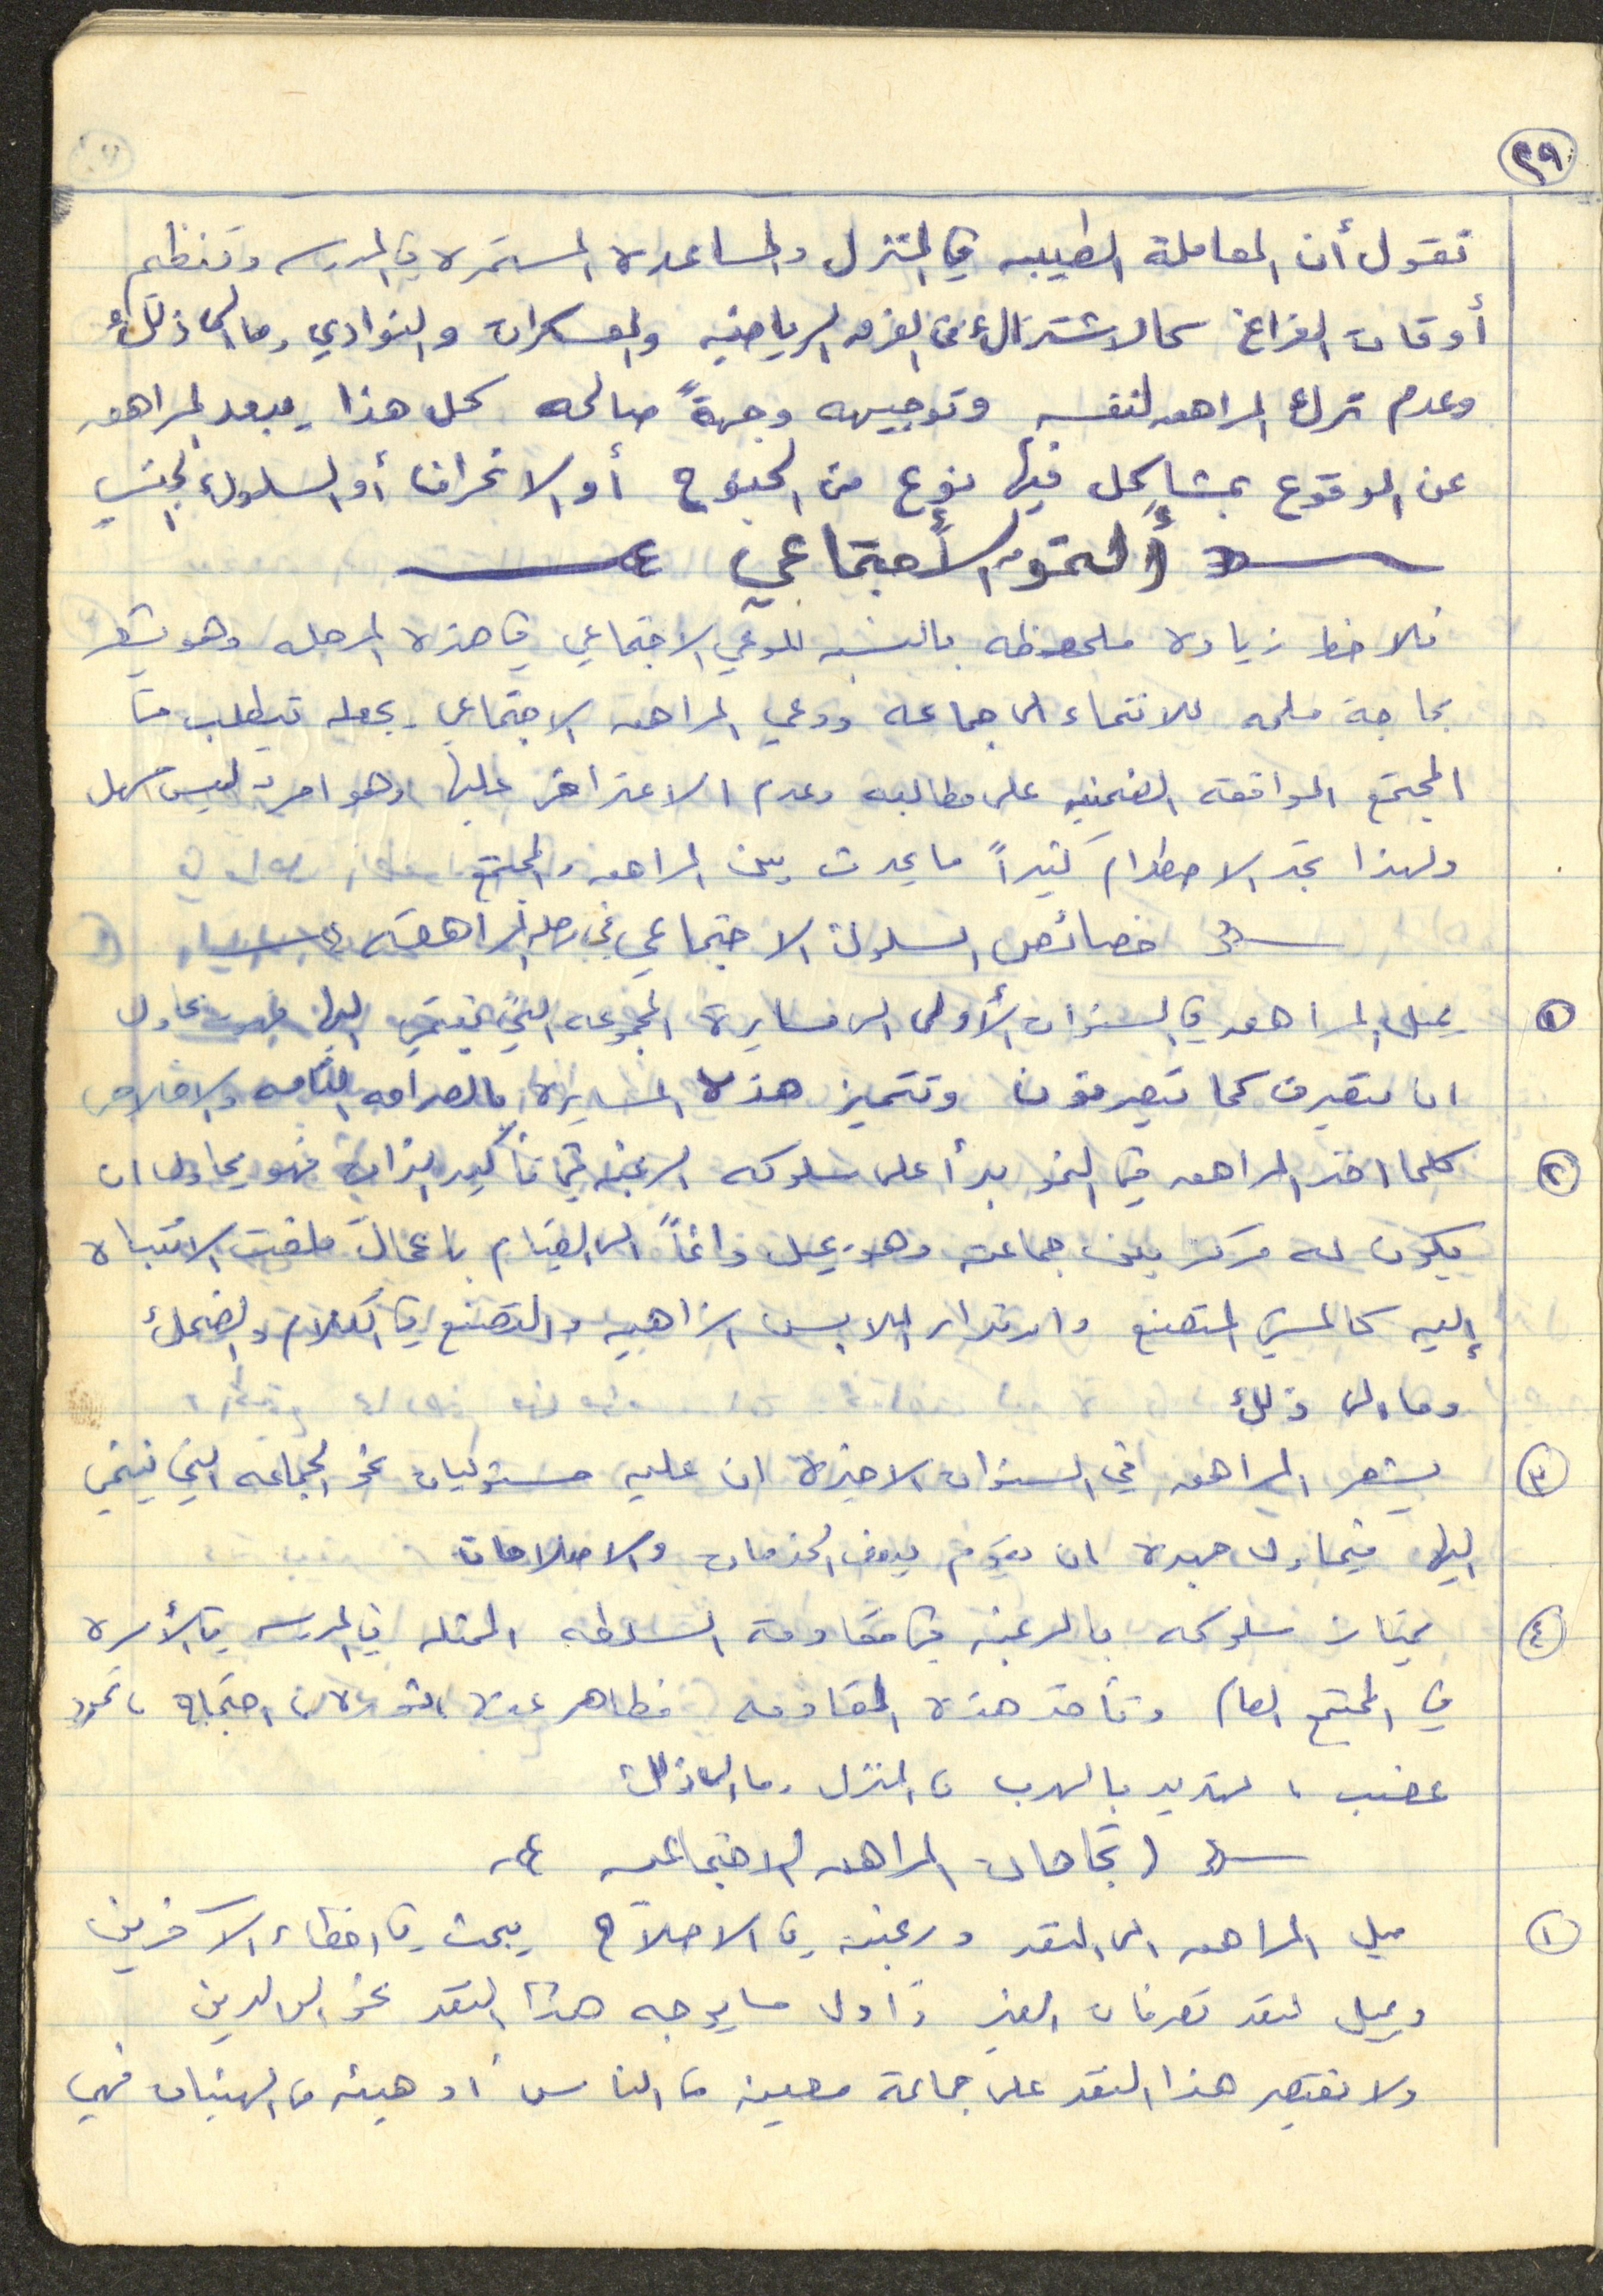 ٢٩
نقول أن المعاملة الطيبه في المنزل والمساعدة المستمرة في المدرسه وتنظيم
أوقات الفراغ كالاشتراك في الفرق الرياضيه والمعسكرات والنوادي وما الى ذلك
وعدم ترك المراهق لنفسه وتوجيهه وجهةً صالحه كل هذا يبعد المراهق
عن الوقوع بمشاكل فيها نوع من الجنوح أو الانحراف أو السلوك الجنسي
ألنمو الأجتماعي
نلاحظ زيادة ملحوظه بالنسبه للوعي الاجتماعي في هذه المرحله وهو يشعر
بحاجة ملحه للانتماء الى جماعه ووعي المراهق الاجتماعي يجعله يتطلب من
المجتمع الموافقة الضمنيه على مطالبه وعدم الاعتراض عليها وهو امر ليس سهل
ولهذا نجد الاصطدام كثيراً ما يحدث بين المراهق والمجتمع
خصائص السلوك الاجتماعي في مرحلة المراهقة
١ يميل المراهق في السنوات الأولى الى مسايرة المجموعه التي ينتمي اليها فهو يحاول
ان يتصرف كما يتصرفون وتتميز هذه المسايرة بالصراحه التامه والاخلاص
٢ كلما اخذ المراهق في النمو بدأ على سلوكه الرغبه في تأكيد الذات فهو يحاول ان
يكون له مركز بين جماعته وهو يميل دائماً الى القيام باعمال ملفت الانتباه
إليه كالمشي المتصنع وارتداء الملابس الزاهيه والتصنع في الكلام والضحك
وما الى ذلك
٣ يشعر المراهق في السنوات الاخيرة ان عليه مسئوليات نحو الجماعه التي ينتمي
اليها فيحاول جهده ان يقوم ببعض الخدمات والاصلاحات
٤ يمتاز سلوكه بالرغبه في مقاومة السلطه الممثله في المدرسه في الأسرة
في المجتمع العام وتأخذ هذه المقاومه مظاهر عدة احتجاج ، تمرد
غضب ، تهديد بالهرب من المنزل وما الى ذلك
اتجاهات المراهق الاجتماعيه
١ ميل المراهق الى النقد ورغبته في الاصلاح يبحث في اخطاء الآخرين
ويميل لنقد تصرفات الغير وأول ما يوجه هذا النقد نحو الوالدين
ولا يقتصر هذا النقد على جماعة معينه من الناس أو هيئه من الهيئات فهي